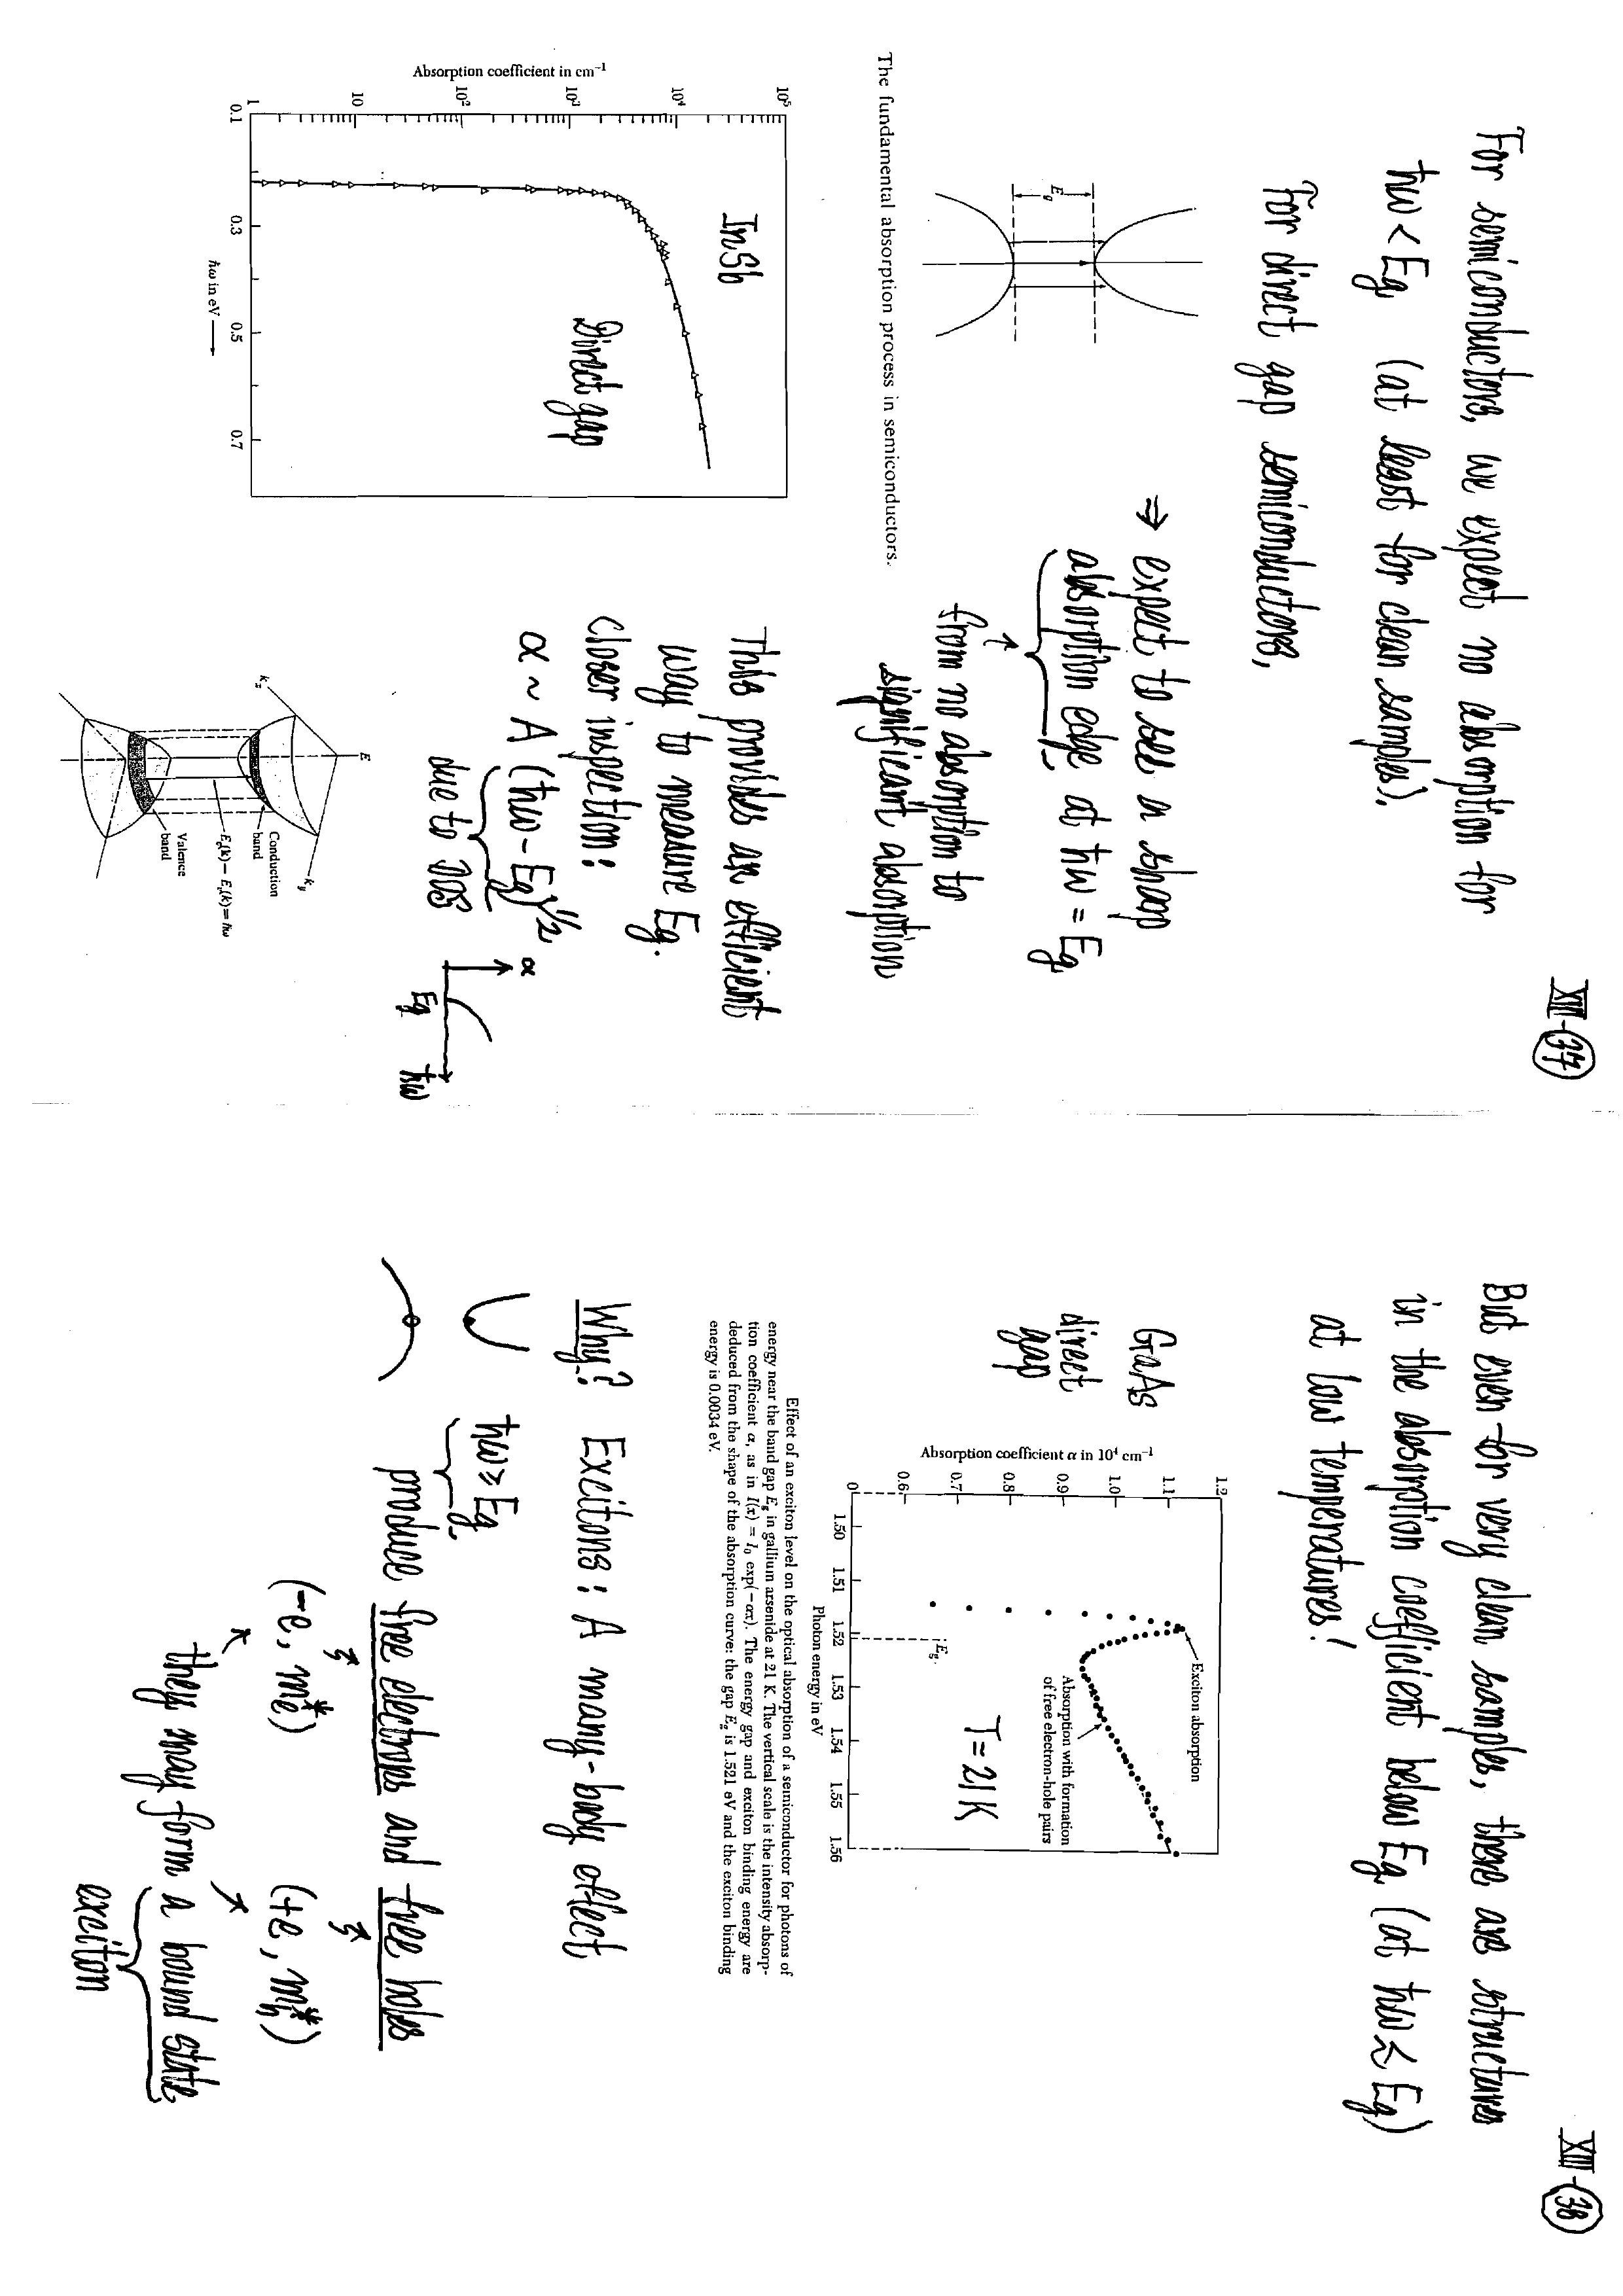 XIII-37
For semiconductors, we expect no absorption for
ħω < Eg (at least for clean samples).
For direct gap semiconductors,
Eg
The fundamental absorption process in semiconductors.
⇒ expect to see a sharp
absorption edge at ħω = Eg
from no absorption to
significant absorption
Absorption coefficient in cm⁻¹
10⁵
10⁴
10³
10²
10
1
0.1
0.3
0.5
0.7
ħω in eV
InSb
Direct gap
This provides an efficient
way to measure Eg.
Closer inspection:
α ~ A (ħω - Eg)^1/2
due to DOS
α
Eg
ħω
E
kx
ky
Conduction
band
Ec(k) − Ev(k) = ħω
Valence
band
XIII-38
But even for very clean samples, there are structures
in the absorption coefficient below Eg (at ħω ≲ Eg)
at low temperatures!
GaAs
direct
gap
Absorption coefficient α in 10⁴ cm⁻¹
1.2
1.1
1.0
0.9
0.8
0.7
0.6
0
1.50
1.51
1.52
1.53
1.54
1.55
1.56
Photon energy in eV
Exciton absorption
Absorption with formation
of free electron-hole pairs
Eg
T=21K
Effect of an exciton level on the optical absorption of a semiconductor for photons of
energy near the band gap Eg in gallium arsenide at 21 K. The vertical scale is the intensity absorp-
tion coefficient α, as in I(x) = I₀ exp(−αx). The energy gap and exciton binding energy are
deduced from the shape of the absorption curve: the gap Eg is 1.521 eV and the exciton binding
energy is 0.0034 eV.
Why? Excitons: A many-body effect
ħω ≥ Eg
produce free electrons and free holes
(-e, me*) (+e, mh*)
they may form a bound state
exciton